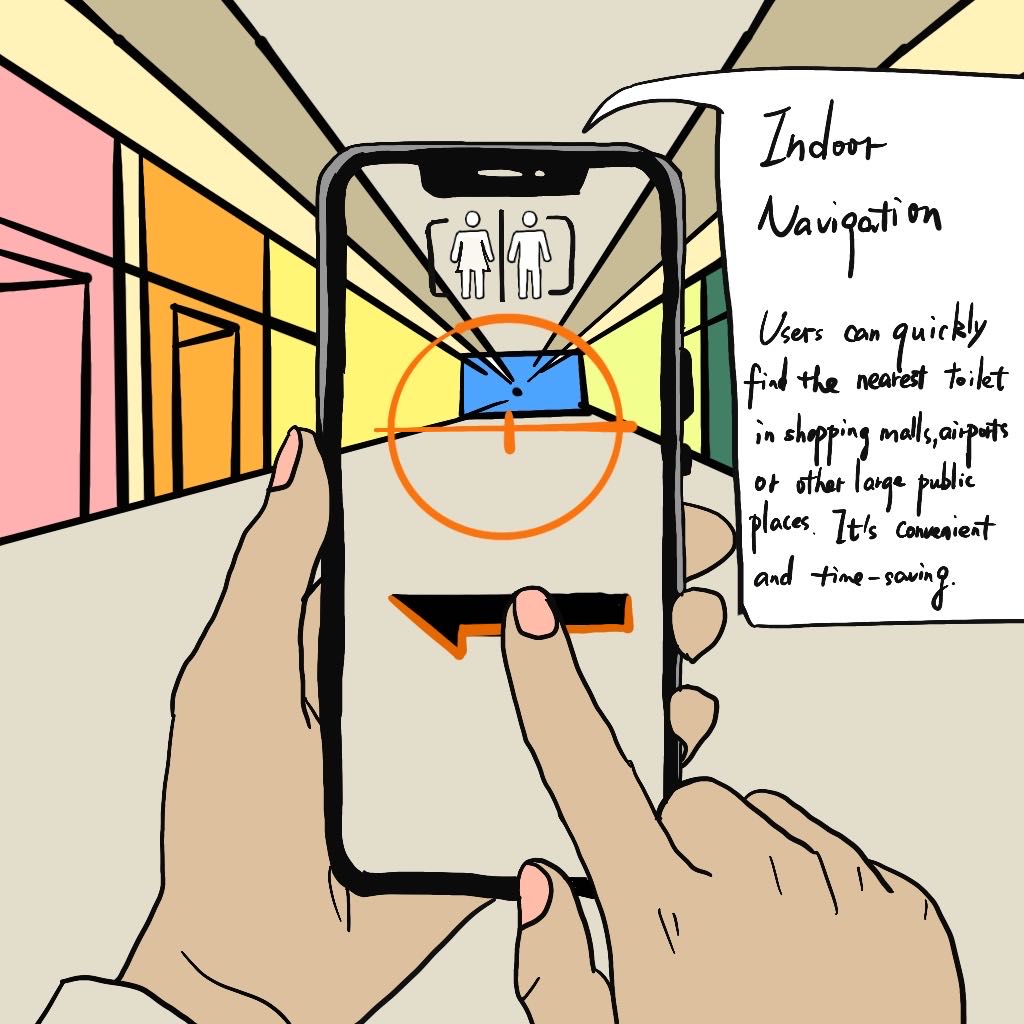 Indoor
Navigation
Users can quickly
find the nearest toilet
in shopping malls, airports
or other large public
places. It's convenient
and time-saving.